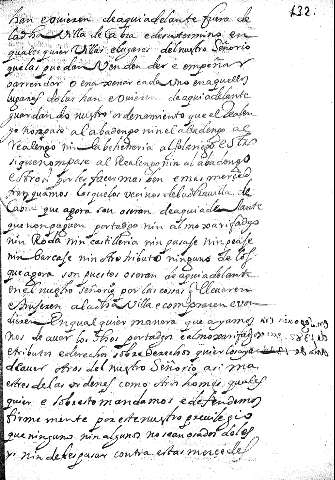 132.
han e ovieren de aqui adelante fuera de
la dha Villa de Cabra e de su termino en
quales quier Villas e lugares del nuestro Señorio
que las puedan Vender dar e empeñar
e arrendar o enaxenar cada Uno en aquellos
lugares do las han e ovieren de aqui adelante
guardando nuestro ordenamiento que el Realen
go non pase al abadengo nin el abadengo al
realengo nin la behetria al solariego e estas
si que non pase al Realengo nin al abadengo
e otrosi por les facer mas bien e mas merced
franquamos los a los vecinos de la dha villa de
Cabra que agora son o seran de aqui adelante
que non paguen portadgo nin almoxarifadgo
nin Roda nin castilleria nin pasaje nin peaje
nin barcaje nin otro tributo ninguno de los
que agora son puestos o seran de aqui adelante
en el nuestro señorio por las cosas q llevaren
e truxeren a la dha Villa e compraren e ven
dieren En qual quier manera que ayamos
nos de aver los dhos portadgos e almoxarifadgos
e tributos e derechos sobre derechos quier los aya
de aver otros del nuestro Señorio asi ma
estres de las ordenes como otros homes quales
quier e sobre esto mandamos e defendemos
firme mente por este nuestro previlegio
que ninguno nin algunos no sean osados de les
yr nin de les pasar contra estas mercedes